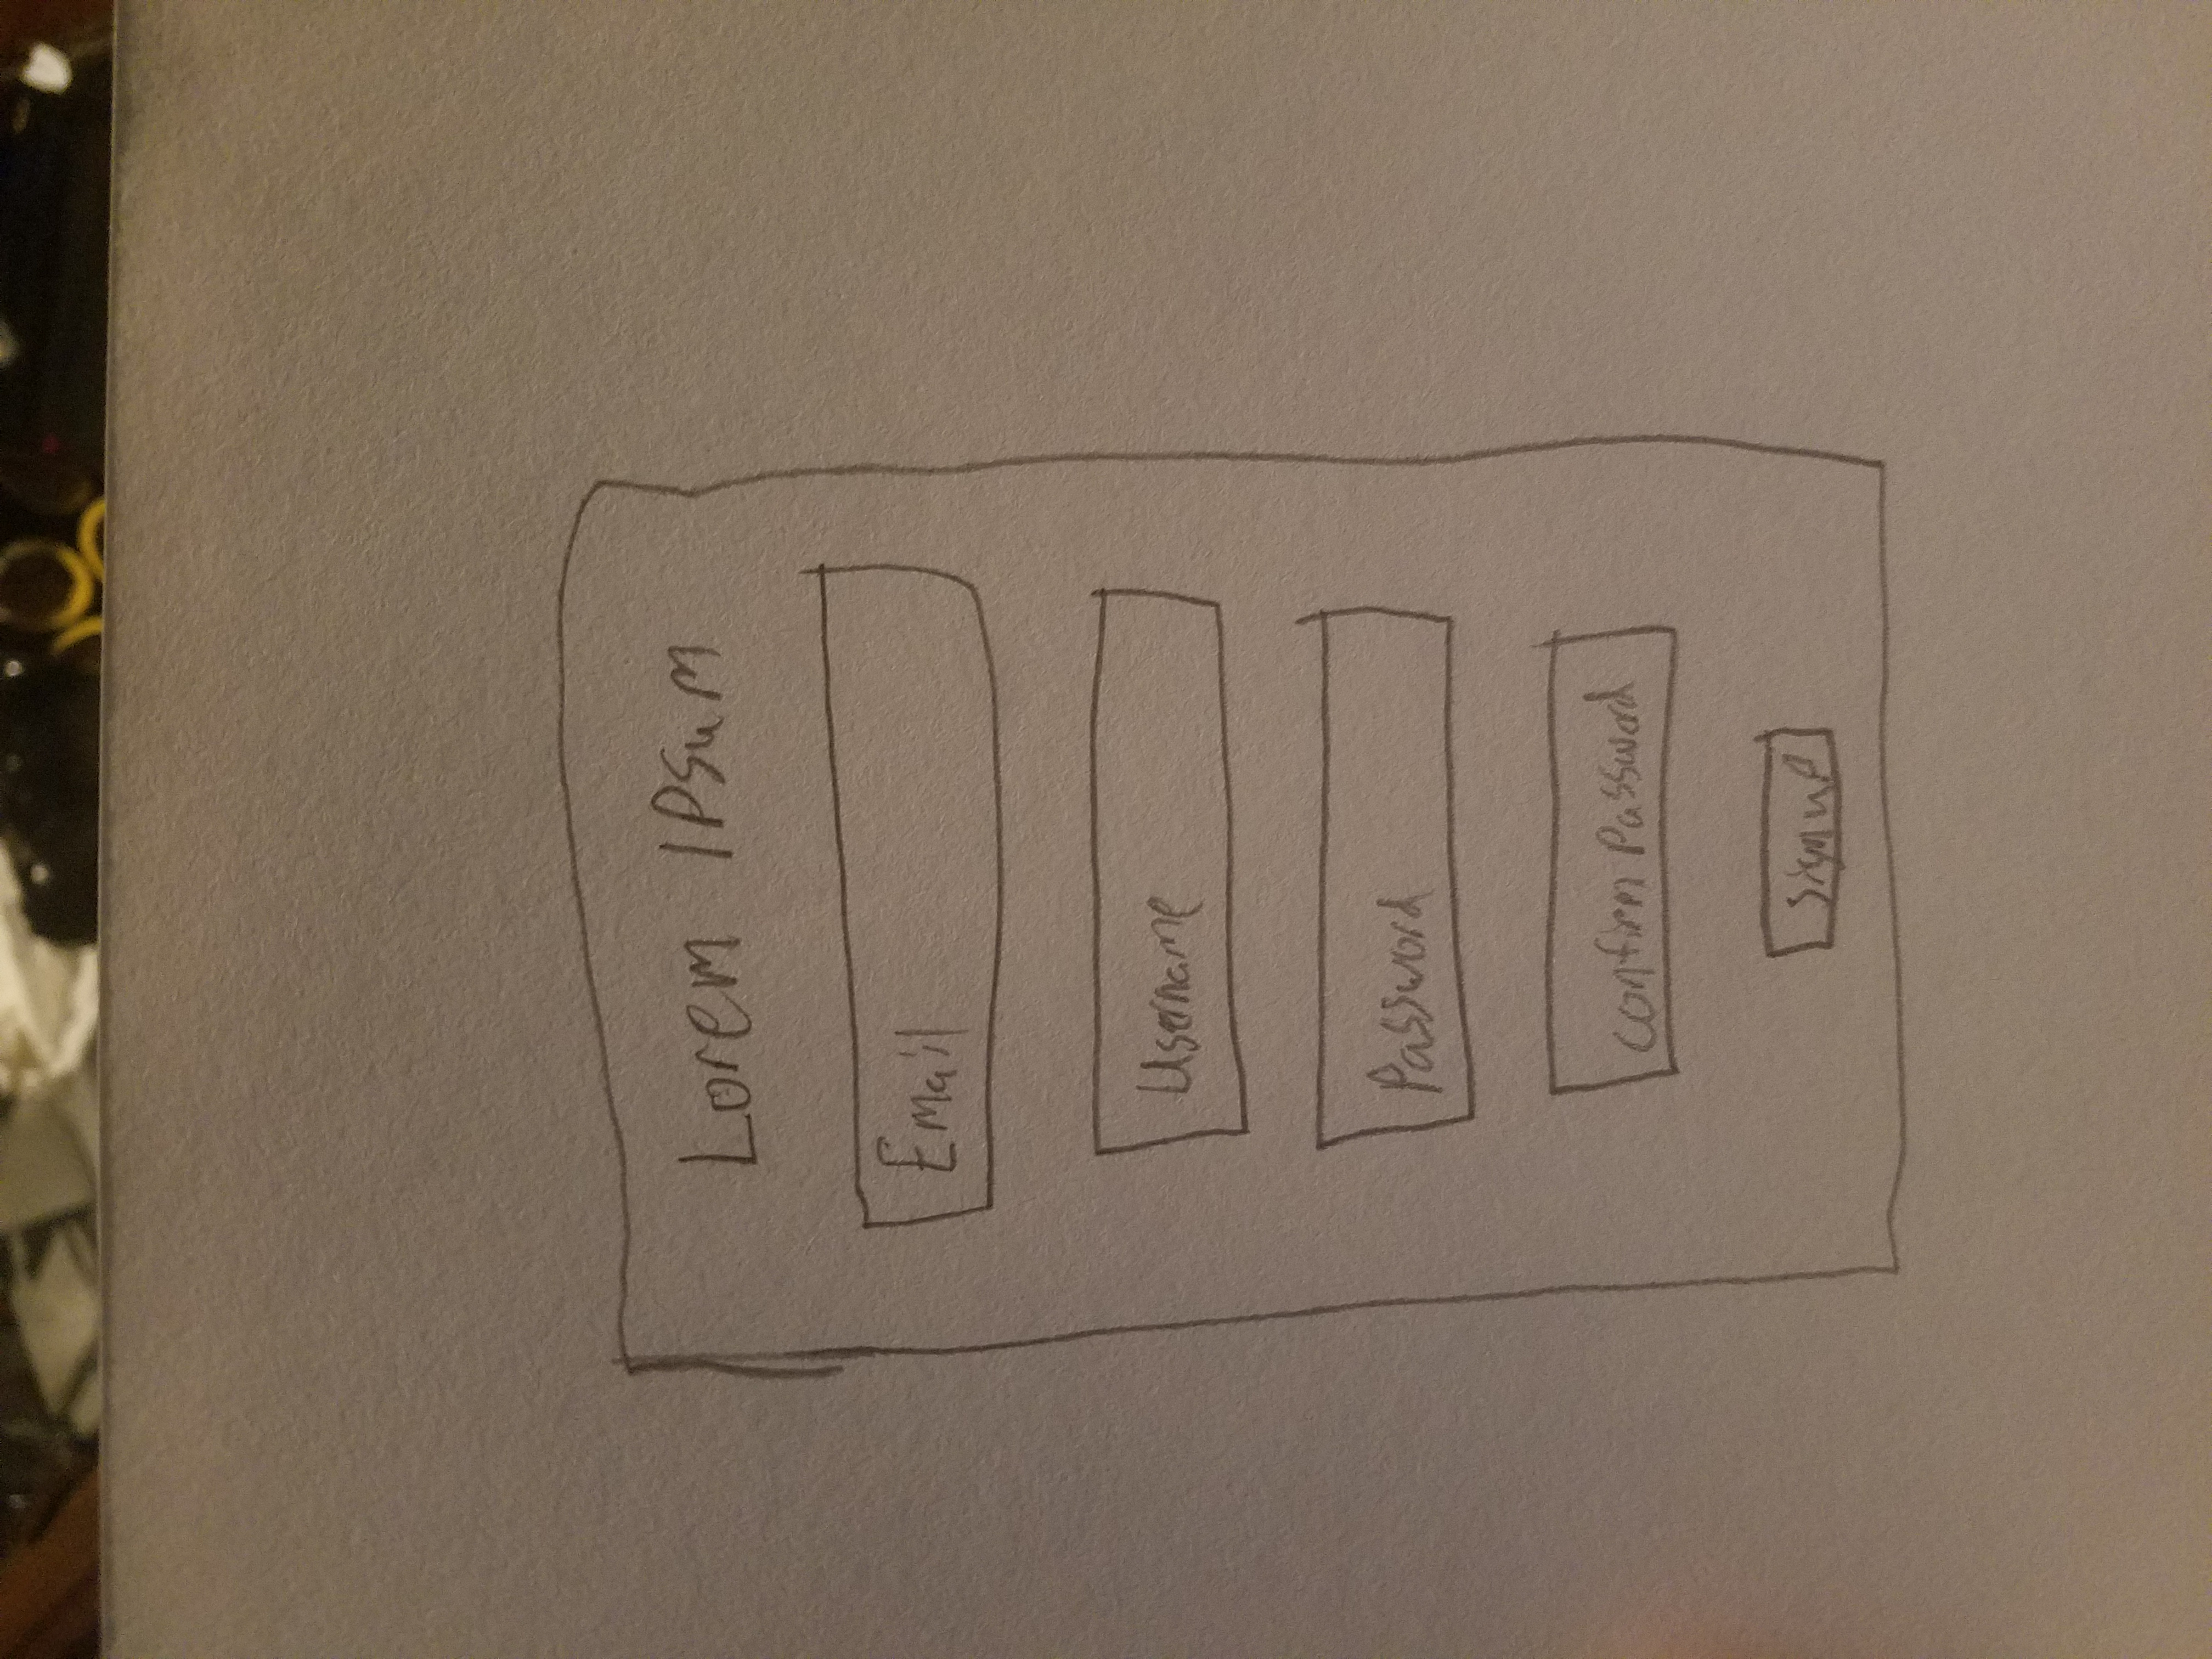 Lorem Ipsum
Email
Username
Password
confirm Password
sign up